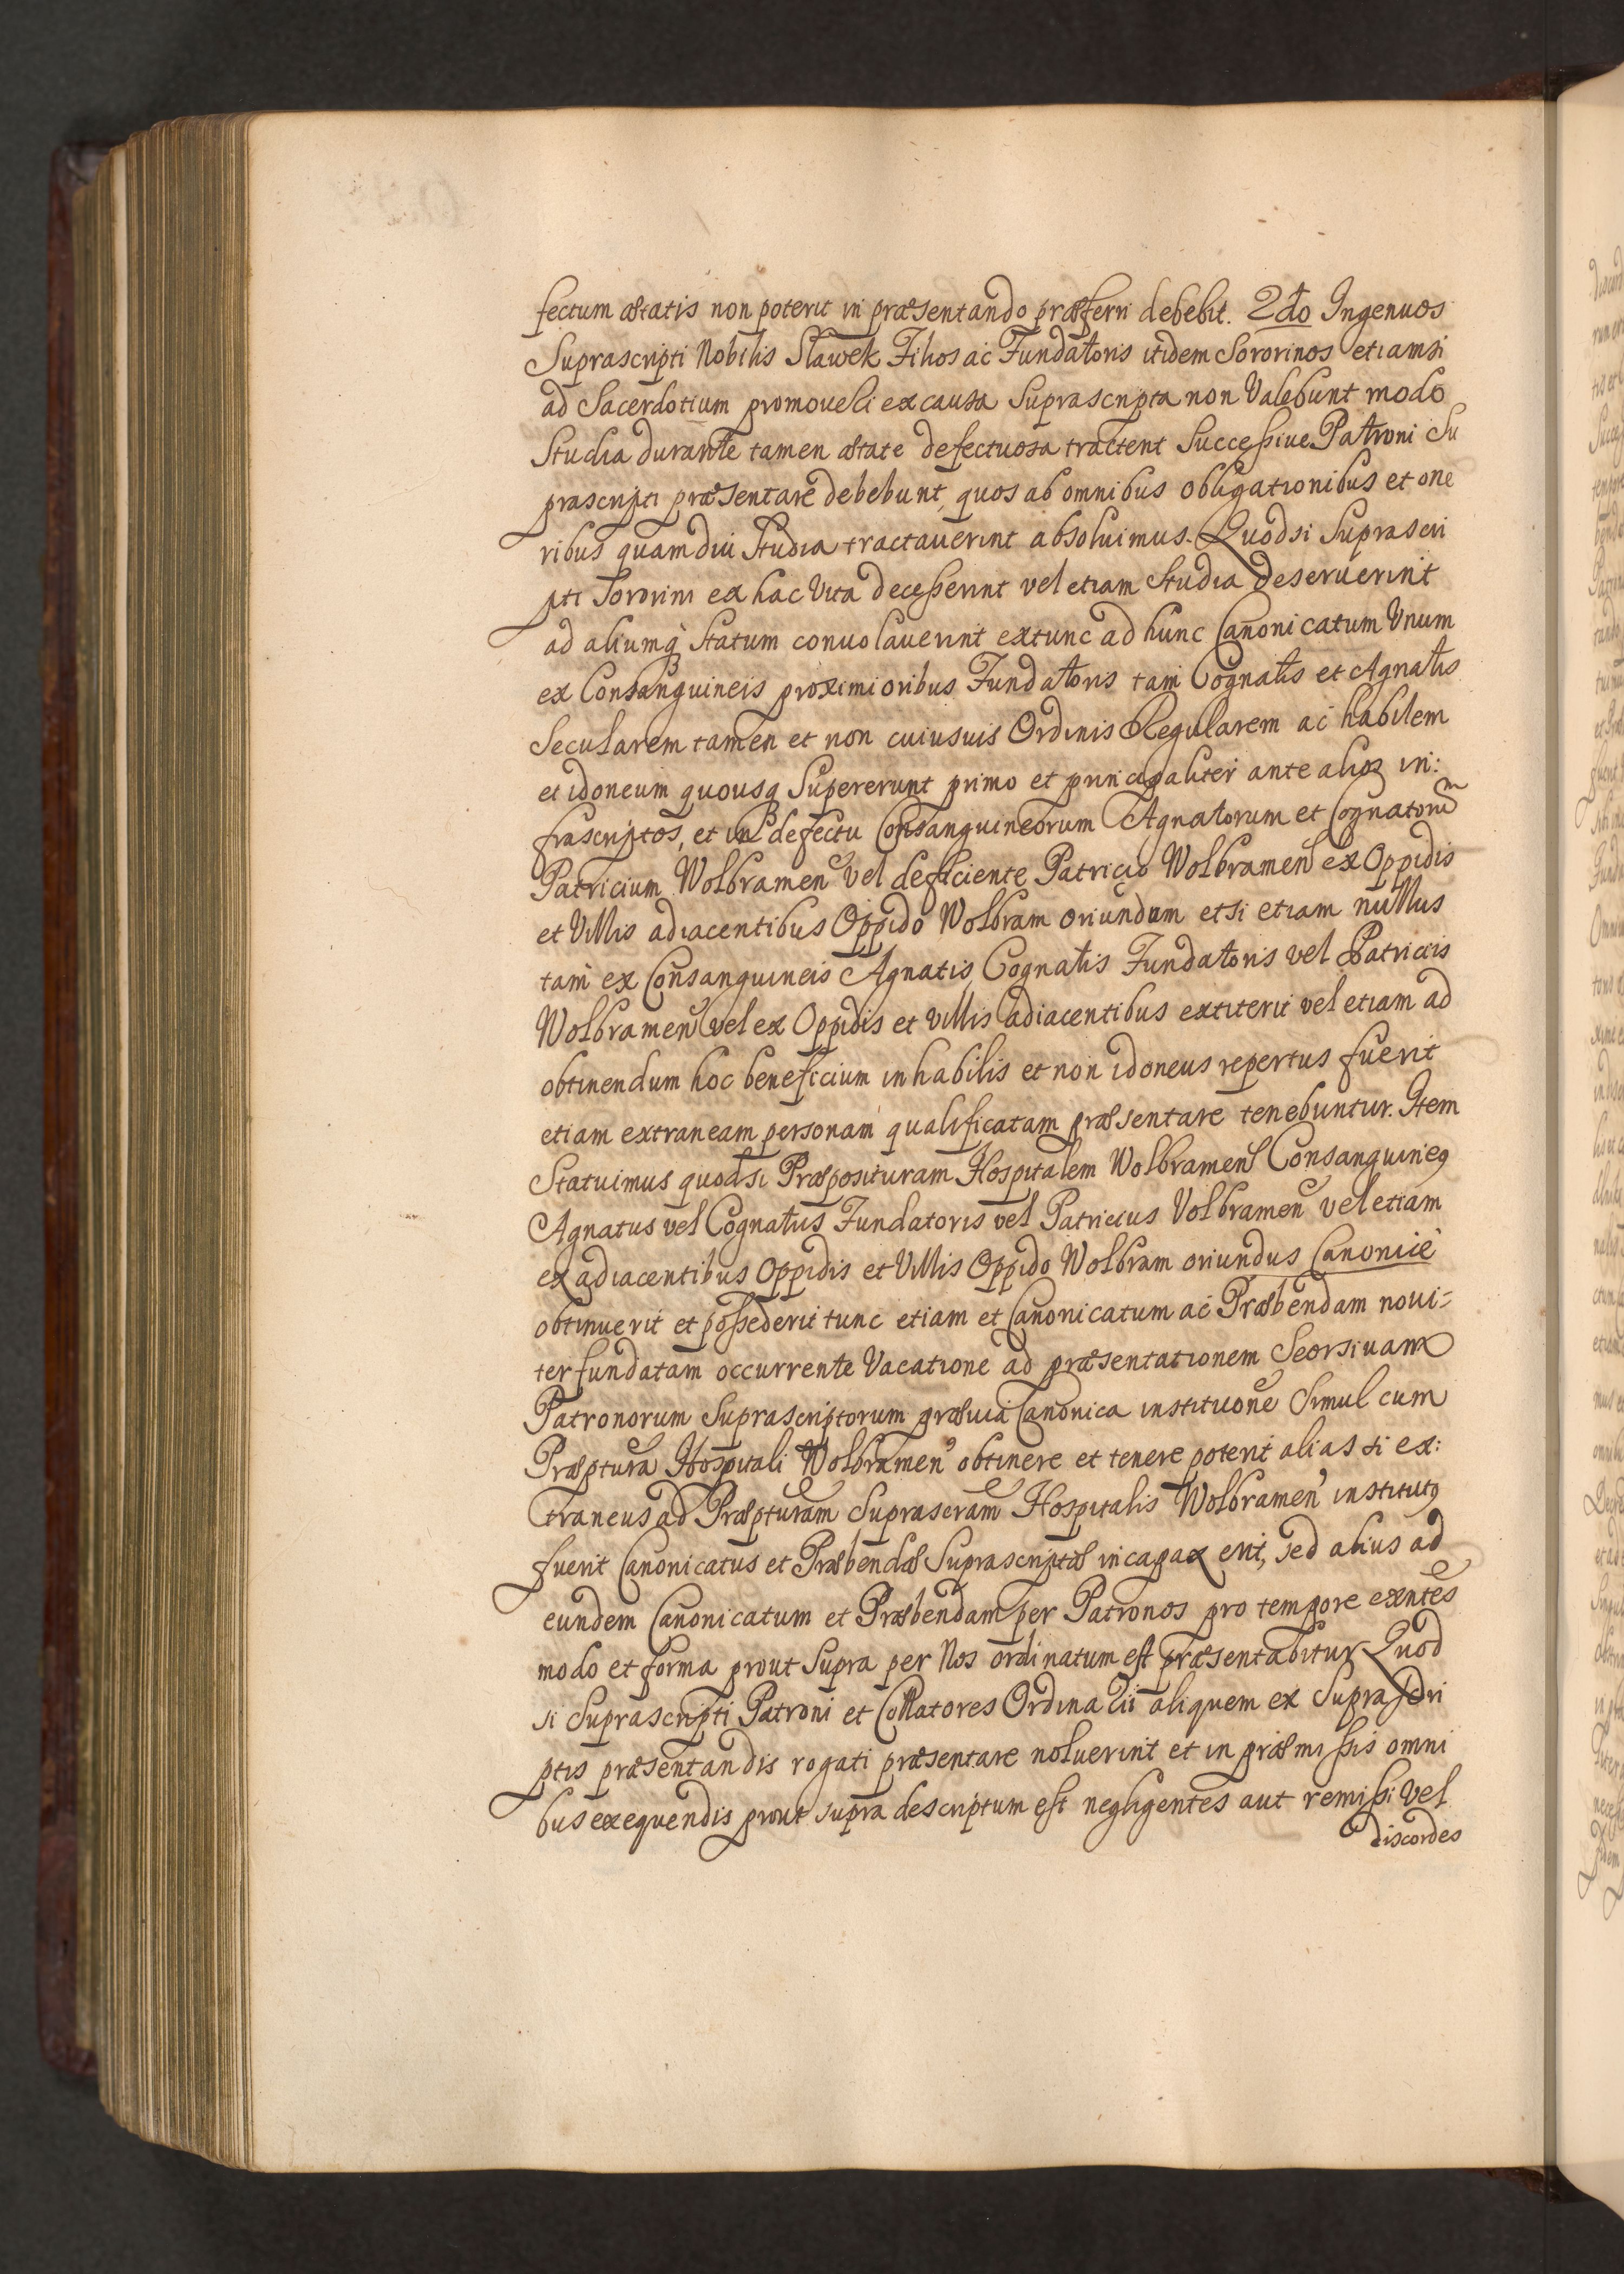 fectum ætatis non poterit in præsentando præferri debebit. 2do Ingenuos
Suprascripti Nobilis Sławek Filios ac Fundatoris itidem Sororinos etiamsi
ad Sacerdotium promoueri ex causa Suprascripta non Valebunt modo
Studia durante tamen ætate defectuosa tractent Successiue Patroni Su
prascripti præsentare debebunt, quos ab omnibus obligationibus et one
ribus quamdiu Studia tractauerint absoluimus. Quodsi Suprascri
pti Sororini ex hac Vita decesserint vel etiam Studia deseruerint
ad aliumq̃ Statum conuolauerint extunc ad hunc Canonicatum Vnum
ex Consanguineis proximioribus Fundatoris tam Cognatis et Agnatis
Secularem tamen et non cuiusuis Ordinis Regularem ac habilem
et idoneum quousq Supererunt primo et principaliter ante alios in:
frascriptos, et in defectu Consanguineorum Agnatorum et Cognatorũm
Patricium Wolbramen̄ vel deficiente Patricio Wolbramen̄ ex Oppidis
et Villis adiacentibus Oppido Wolbram oriundum etsi etiam nullus
tam ex Consanguineis Agnatis, Cognatis Fundatoris vel Patriciis
Wolbramen̄ vel ex Oppidis et villis adiacentibus extiterit vel etiam ad
obtinendum hoc beneficium inhabilis et non idoneus repertus fuerit
etiam extraneam personam qualificatam præsentare tenebuntur. Item
Statuimus quodsi Præposituram Hospitalem Wolbramen̄ Consanguineꝰ
Agnatus vel Cognatus Fundatoris vel Patricius Volbramen̄ vel etiam
ex adiacentibus Oppidis et Villis Oppido Wolbram oriundus Canonicè
obtinuerit et possederit tunc etiam et Canonicatum ac Præbendam noui=
ter fundatam occurrente Vacatione ad præsentationem Seorsiuam
Patronorum Suprascriptorum præuia Canonica institutione Simul cum
Præptura Hospitali Wolbramen̄ obtinere et tenere poterit alias si ex:
traneus ad Præpturam Suprascram Hospitalis Wolbramen̄ institutꝰ
fuerit Canonicatus et Præbendæ Suprascriptæ incapax erit, sed alius ad
eundem Canonicatum et Præbendam per Patronos pro tempore exñtes
modo et forma prout Supra per Nos ordinatum est præsentabitur Quod
si Suprascripti Patroni et Collatores Ordinarii aliquem ex Suprascri
ptis præsentandis rogati præsentare noluerint et in præmissis omni
bus exequendis prout supra descriptum est negligentes aut remissi vel
discordes